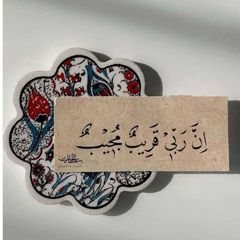 إِنَّ رَبِّيْ قَرِيبٌ مُجِيْبٌ